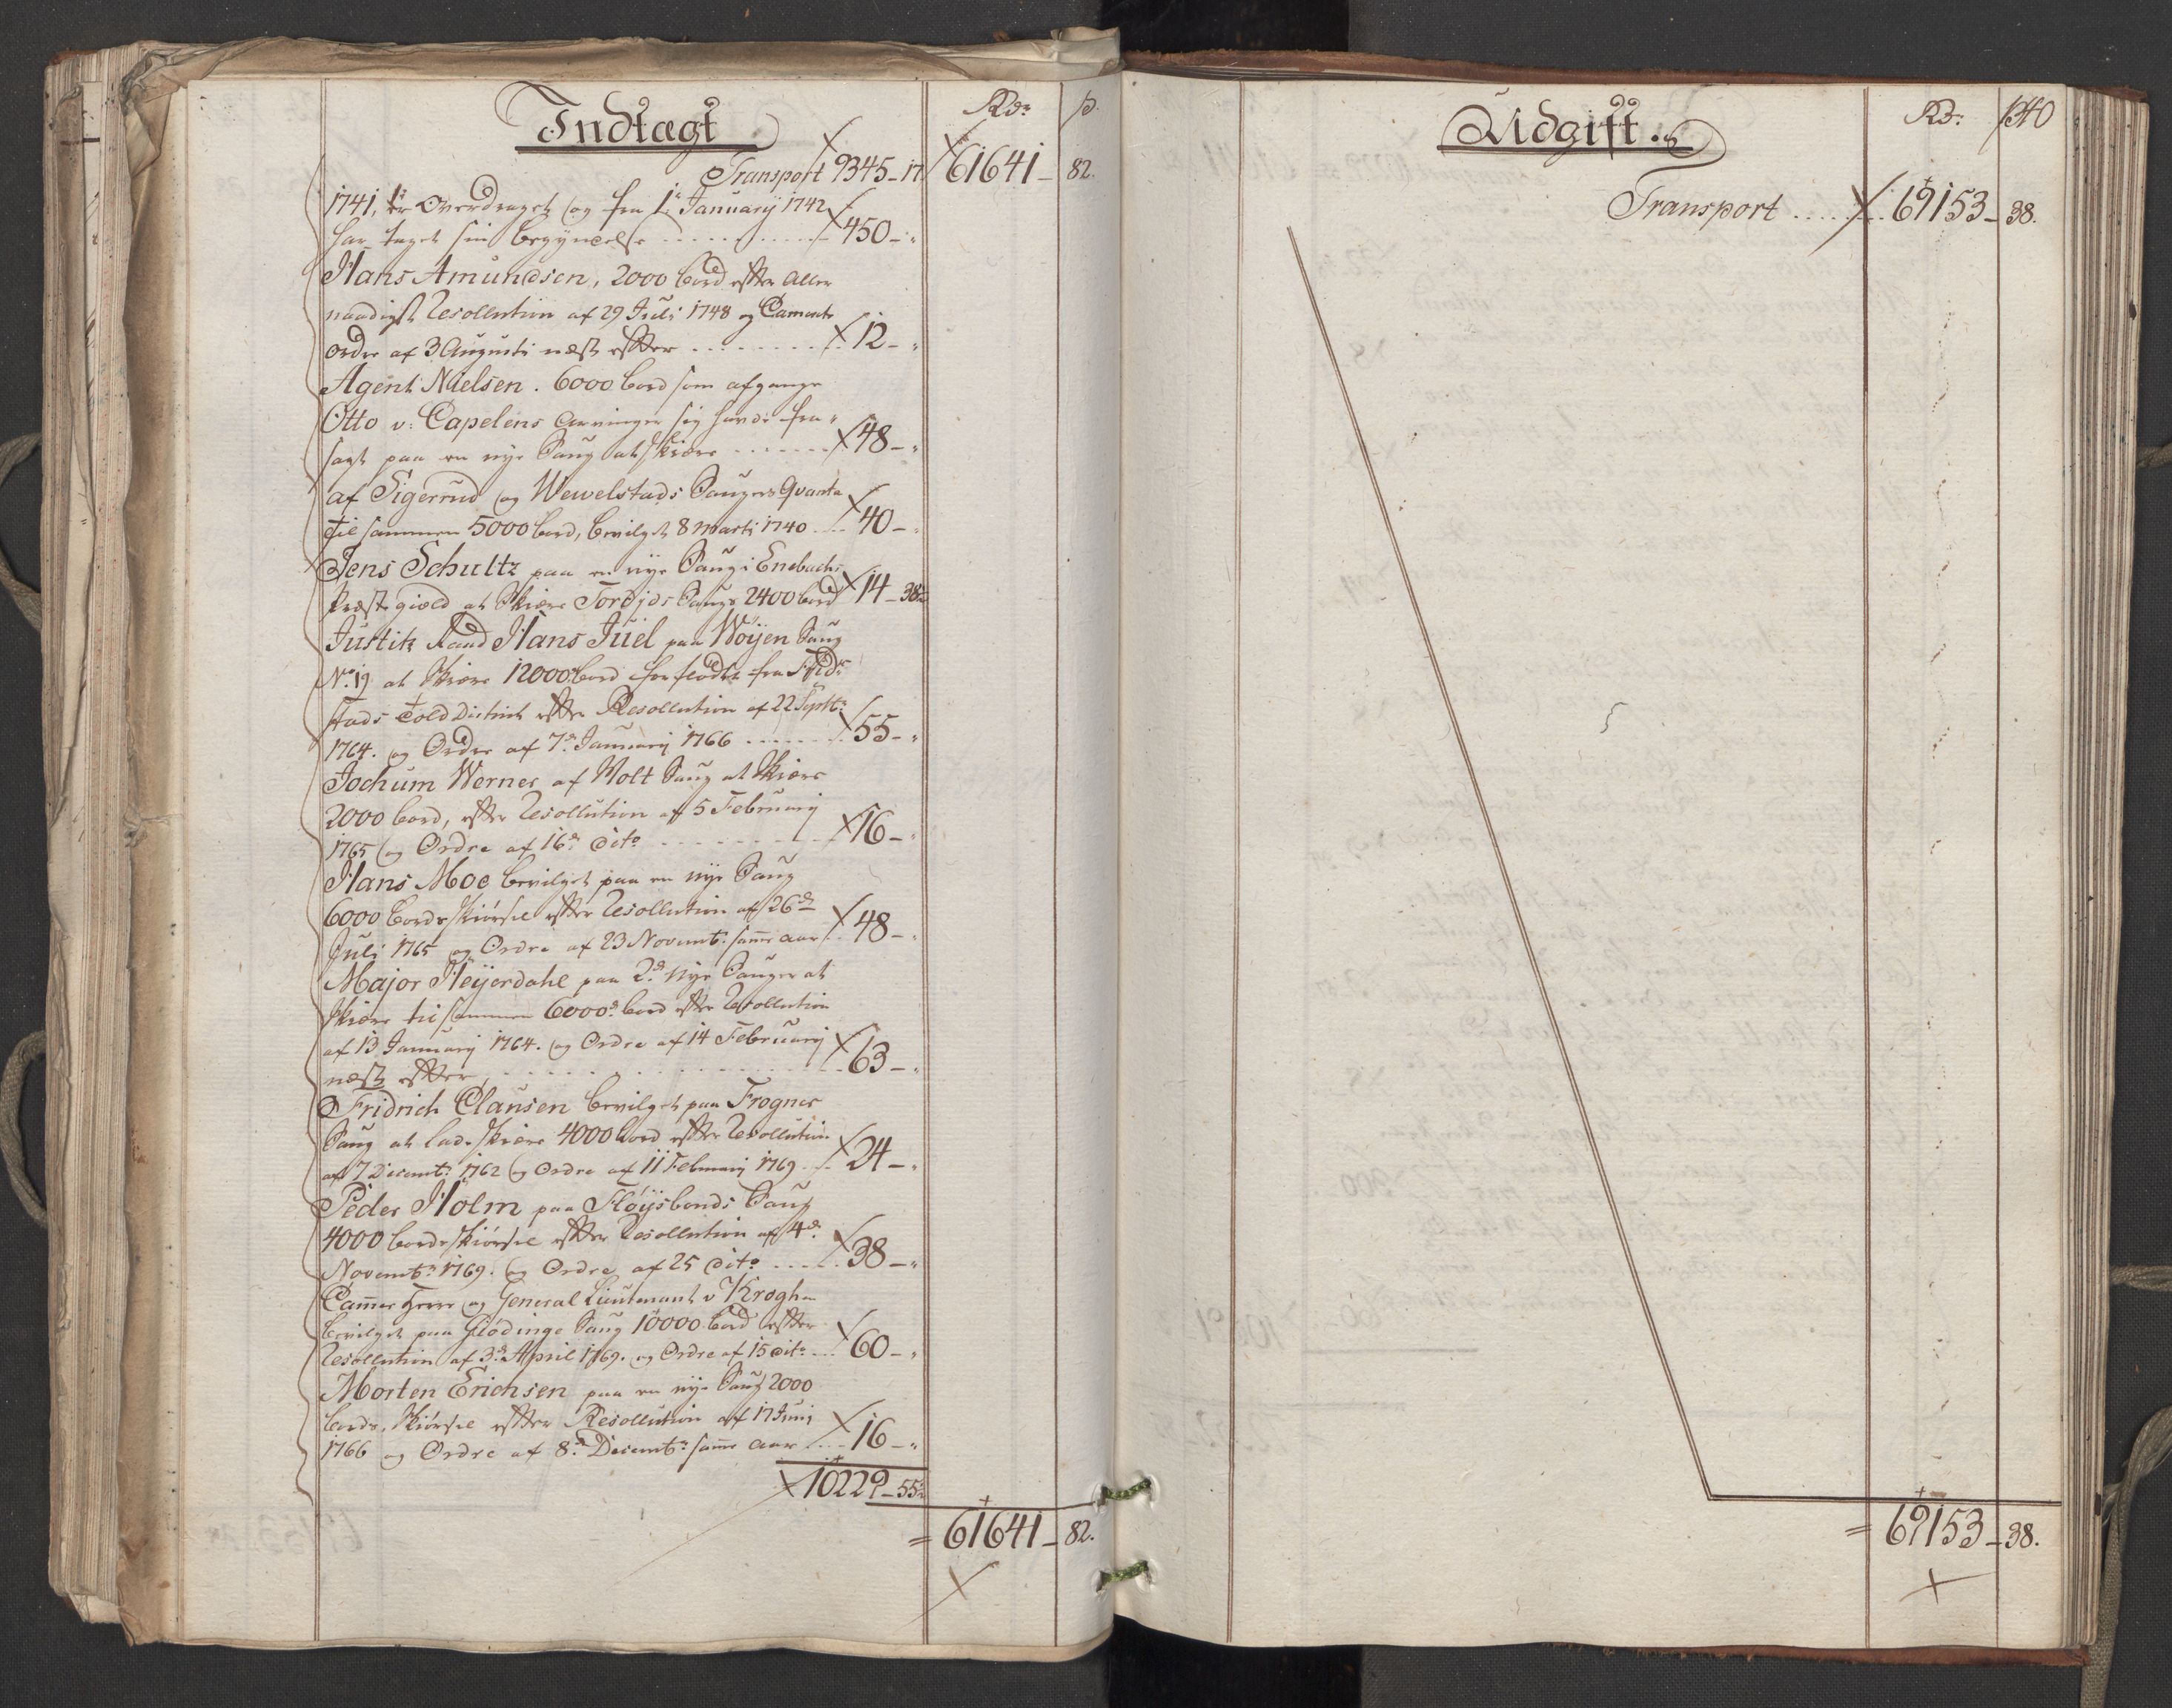 Indtægt
Rdr ß.
Transport 9345-17 61641-82.
1741, er Overdraget og fra 1. Januarij 1742
har taget sin begyndelse ........... 450-"
Hans Amundsen, 2000 bord efter Aller
naadigst Resollution af 29 Juli 1748 og Cammer
ordre af 3 Augusti næst efter ........ 12-"
Agent Nielsen. 6000 bord som afgangne
Otto v: Capelens Arvinger sig havde fra-
sagt paa en nye Saug at skiære ....... 48-"
af Sigerrud og Wewelstads Sauger Qvanta
til sammen 5000 bord, bevilget 8 Marti 1740 .... 40-"
Jens Schultz paa en nye Saug i Enebachs
Præstegield at Skiære Tordjds Saugs 2400 bord 14-38½
Justitz Raad Hans Juel paa Wøyen Saug
No. 19 at skiære 12000 bord forflødt fra Fridr
stads Told District efter Resollution af 22 Septbr
1764. og Ordre af 7de Januarij 1766 ....... 55-"
Jochum Werner af Holt Saug at skiære
2000 bord, efter Resollution af 5 Februarij
1765 og Ordre af 16de dito ......... 16-"
Hans Moe bevilget paa en nye Saug
6000 bords skiørsel efter Resollution af 26de
Juli 1765 og Ordre af 23 Novembr: samme aar .. 48-"
Major Heyerdahl paa 2de nye Sauger at
skiære til sammen 6000de bord efter Resollution
af 13 Januarij 1764. og Ordre af 14 Februarij
næst efter, ............. 63-"
Fridrich Clausen bevilget paa Frogner
Saug at lade skiære 4000 bord efter Resollution
af 7 Decembr: 1762 og Ordre af 11 Februarij 1769 ... 24-"
Peder Holm paa Fløysbonds Saug
4000 bords skiørsel efter Resollution af 4de
Novembr: 1769. og Ordre af 25 dito ..... 38-"
Cammer Herre og General Lieutenant v Krogh
bevilget paa Glødinge Saug 10000 bord efter
Resollution af 3de April 1769. og Ordre af 15 dito ... 60-"
Morten Erichsen paa en nye Saug 2000
bords skiørsel efter Resollution af 17 Junij
1766 og Ordre af 8de Decembr: samme aar .... 16-"
10229-55½
= 61641-82.
Udgift.
Rdr: ß 40
Transport ....... 69153-38.
= 69153-38.